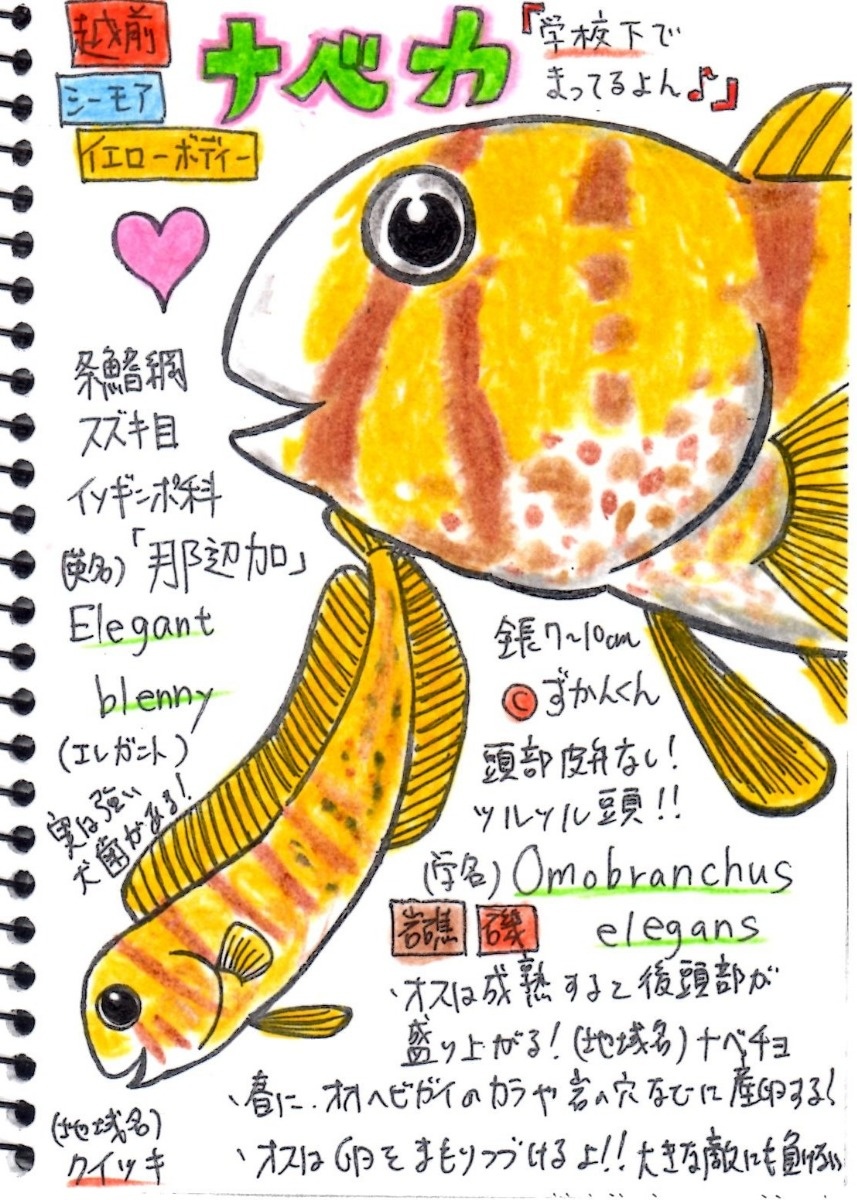 越前
シーモア
イエローボディー
ナベカ
『学校下で
まってるよん♪』
条鰭綱
スズキ目
イソギンポ科
(英名)「那辺加」
Elegant
blenny
(エレガント)
実は強い
犬歯がある!
全長7〜10cm
©ずかんくん
頭部皮弁なし!
ツルツル頭!!
(学名) Omobranchus
elegans
岩礁 磯
、オスは成熟すると後頭部が
盛り上がる!(地域名)ナベチョ
、春に、オオヘビガイのカラや岩の穴などに産卵する!
、オスは卵をまもりつづけるよ!!大きな敵にも負けない
(地域名)
クイツキ